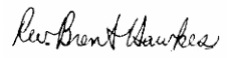 Rev. Brent Hawkes